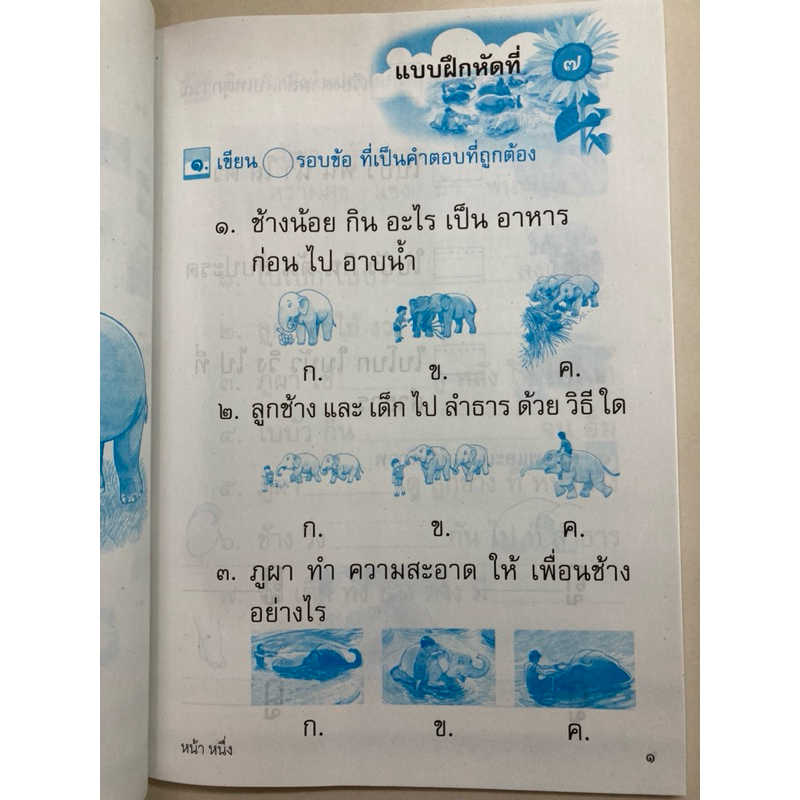 แบบฝึกหัดที่ ๗
๑. เขียน รอบข้อ ที่เป็นคำตอบที่ถูกต้อง
๑. ช้างน้อย กิน อะไร เป็น อาหาร
ก่อน ไป อาบน้ำ
ก. ข. ค.
๒. ลูกช้าง และ เด็ก ไป ลำธาร ด้วย วิธี ใด
ก. ข. ค.
๓. ภูผา ทำ ความสะอาด ให้ เพื่อนช้าง
อย่างไร
ก. ข. ค.
หน้า หนึ่ง ๑